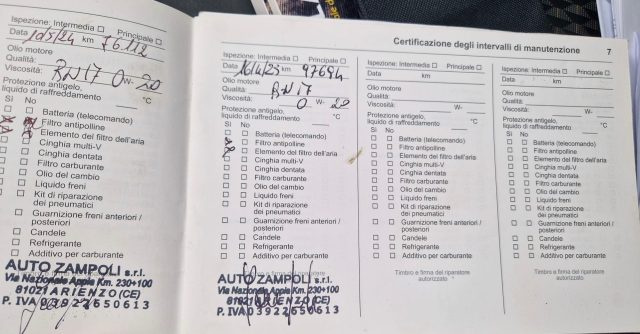 Ispezione: Intermedia □ Principale □
Data 10/5/24 km 76112
Olio motore
Qualità: RN17
Viscosità: 0 W- 20
Protezione antigelo,
liquido di raffreddamento °C
Sì No
Batteria (telecomando)
Filtro antipolline
Elemento del filtro dell'aria
Cinghia multi-V
Cinghia dentata
Filtro carburante
Olio del cambio
Liquido freni
Kit di riparazione
dei pneumatici
Guarnizione freni anteriori /
posteriori
Candele
Refrigerante
Additivo per carburante
AUTO ZAMPOLI s.r.l.
Via Nazionale Appia Km. 230+100
81021 ARIENZO (CE)
P. IVA 03922650613
Certificazione degli intervalli di manutenzione 7
Ispezione: Intermedia □ Principale □
Data 16/4/25 km 97694
Olio motore
Qualità: RN17
Viscosità: 0 W- 20
Protezione antigelo,
liquido di raffreddamento °C
Sì No
Batteria (telecomando)
Filtro antipolline
Elemento del filtro dell'aria
Cinghia multi-V
Cinghia dentata
Filtro carburante
Olio del cambio
Liquido freni
Kit di riparazione
dei pneumatici
Guarnizione freni anteriori /
posteriori
Candele
Refrigerante
Additivo per carburante
AUTO ZAMPOLI s.r.l.
Via Nazionale Appia Km. 230+100
81021 ARIENZO (CE)
P. IVA 03922650613
Ispezione: Intermedia □ Principale □
Data km
Olio motore
Qualità:
Viscosità: W-
Protezione antigelo,
liquido di raffreddamento °C
Sì No
Batteria (telecomando)
Filtro antipolline
Elemento del filtro dell'aria
Cinghia multi-V
Cinghia dentata
Filtro carburante
Olio del cambio
Liquido freni
Kit di riparazione
dei pneumatici
Guarnizione freni anteriori /
posteriori
Candele
Refrigerante
Additivo per carburante
Timbro e firma del riparatore
autorizzato
Ispezione: Intermedia □ Principale □
Data km
Olio motore
Qualità:
Viscosità: W-
Protezione antigelo,
liquido di raffreddamento °C
Sì No
Batteria (telecomando)
Filtro antipolline
Elemento del filtro dell'aria
Cinghia multi-V
Cinghia dentata
Filtro carburante
Olio del cambio
Liquido freni
Kit di riparazione
dei pneumatici
Guarnizione freni anteriori /
posteriori
Candele
Refrigerante
Additivo per carburante
Timbro e firma del riparatore
autorizzato